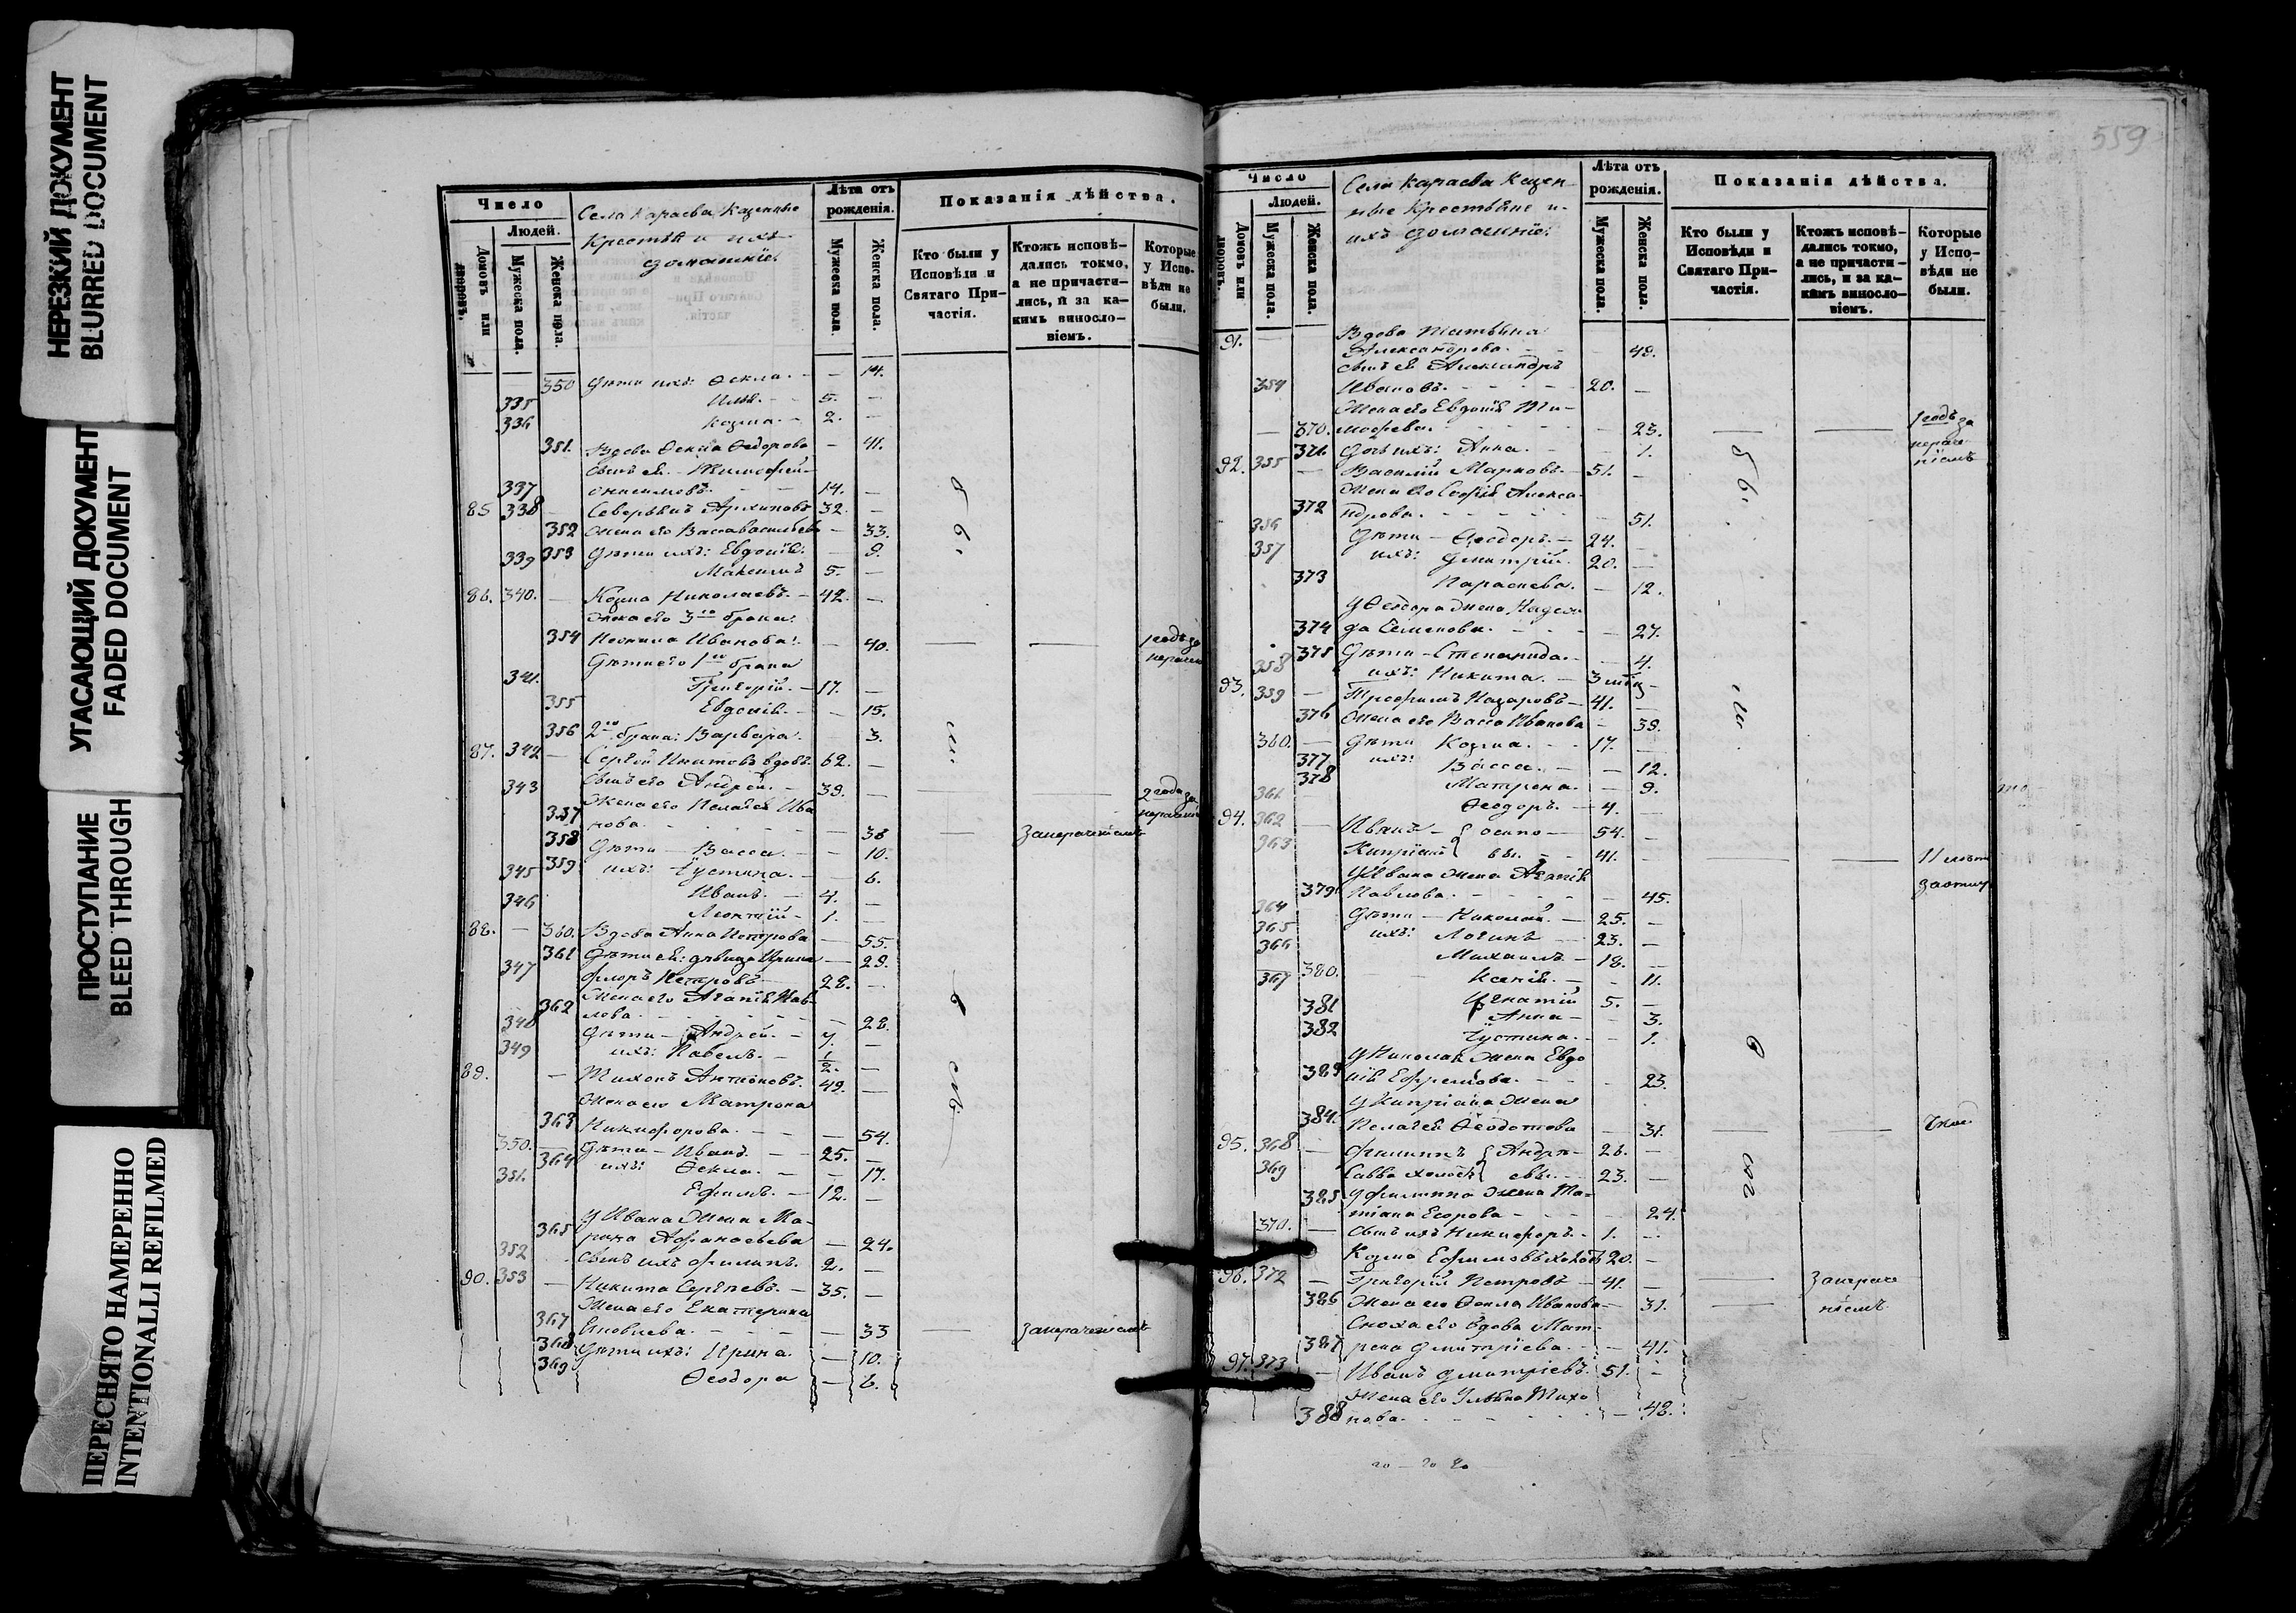 НЕРЕЗКИЙ ДОКУМЕНТ
BLURRED DOCUMENT
УГАСАЮЩИЙ ДОКУМЕНТ
FADED DOCUMENT
ПРОСТУПАНИЕ
BLEED THROUGH
ПЕРЕСНЯТО НАМЕРЕННО
INTENTIONALLI REFILMED
Число
Людей.
Домовъ или дворовъ.
Мужеска пола.
Женска пола.
Села Караева Казенные
Крестьяне и ихъ
домашніе.
Лѣта отъ
рожденія.
Мужеска пола.
Женска пола.
Показанія дѣйства.
Кто были у
Исповѣди и
Святаго При-
частія.
Ктожъ исповѣ-
дались токмо,
а не причасти-
лись, и за ка-
кимъ винословіемъ.
Которые
у Испо-
вѣди не
были.
350 Дѣти ихъ: Ѳекла. 14.
335 Илья. 5.
336 Козма. 2.
351. Вдова Ѳекла Ѳедорова 41.
Сынъ ея Тимоѳей
337 Онисимовъ. 14.
85 338 Северьянъ Архиповъ 32.
352 Жена его Васса Васильева 33.
353 Дѣти ихъ: Евдокія. 9.
339 Максимъ 5.
86. 340. Козма Николаевъ. 42.
Жена его 3го брака
354 Неонила Иванова. 40. 1 годъ за
Дѣти его 1го брака
341. Григорій. 17.
355 Евдокія. 15.
356 2го брака: Варвара. 3.
87. 342 Сергей Игнатовъ вдовъ. 62.
343 Сынъ его Андрей. 39. 2 года за
Жена его Пелагея Ива
357 нова. 38 За нераченіемъ
358 Дѣти Васса. 10.
359 ихъ: Іустина. 6.
345 Иванъ. 4.
346 Леонтій 1.
88. 360. Вдова Анна Петрова 55.
361 Дѣти ея: дѣвица Ирина 29.
347 Флоръ Петровъ 28.
Жена его Агапія Пав
362 лова. 28.
348 Дѣти Андрей. 7.
349 ихъ: Павелъ. 1/2.
89. Тихонъ Антоновъ. 49.
Жена его Матрона
363 Никифорова. 54.
350. Дѣти Иванъ 25.
364 ихъ: Ѳекла. 17.
351. Ефимъ. 12.
У Ивана жена Ма-
365 рина Аѳанасьева 24.
352 Сынъ ихъ Филипъ. 2.
90. 353 Никита Сергѣевъ. 35.
Жена его Екатерина
367 33 За нераченіемъ
368 Дѣти ихъ: Ирина. 10.
369 Ѳеодора 6.
559
Число
Людей.
Домовъ или дворовъ.
Мужеска пола.
Женска пола.
Села Караева Казен-
ные Крестьяне и
ихъ домашніе.
Лѣта отъ
рожденія.
Мужеска пола.
Женска пола.
Показанія дѣйства.
Кто были у
Исповѣди и
Святаго При-
частія.
Ктожъ исповѣ-
дались токмо,
а не причасти-
лись, и за ка-
кимъ винословіемъ.
Которые
у Испо-
вѣди не
были.
91. Вдова Татьяна
Александрова. 49.
Сынъ ея Александръ
354 Ивановъ. 20.
Жена его Евдокія Ти-
370. моѳева. 23. 1 годъ за
371. Дочь ихъ: Анна. 1.
92. 355 Василій Марковъ. 51.
Жена его Софія Алекса-
372 ндрова. 51.
356 Дѣти Ѳеодоръ. 24.
357 ихъ: Дмитрій. 20.
373 Параскева. 12.
У Ѳеодора жена Надеж
374 да Семенова. 27.
375 Дѣти Степанида. 4.
358 ихъ: Никита. 3 мѣц
93. 359 Трофимъ Назаровъ 41.
376 Жена его Васса Иванова 39.
360. Дѣти Козма. 17.
377 ихъ: Васса. 12.
378 Матрона. 9.
361 Ѳеодоръ. 4.
94. 362 Иванъ Осипо 54.
363 Кипріянъ вы. 41. 11 лѣтъ
У Ивана жена Агапія
379 Павлова. 45.
364 Дѣти Николай. 25.
365 ихъ: Логинъ 23.
366 Михаилъ 18.
380. Ксенія. 11.
367 Игнатій 5.
381 Анна 3.
382 Іустина. 1.
У Николая жена Евдо
383 кія Ефремова. 23.
У Кипріана жена
384. Пелагея Ѳеодотова 31.
95. 368 Филиппъ Андре- 26.
369 Савва холостъ евы. 23.
385 У Филиппа жена Та-
тіана Егорова 24.
370. Сынъ ихъ Никифоръ. 1.
Козма Ефимовъ холостъ 20.
96. 372 Григорій Петровъ 41. За нераче
386 Жена его Ѳекла Иванова 31. ніемъ
Сноха его вдова Мат-
387 рена Дмитріева. 41.
97. 373 Иванъ Дмитріевъ. 51.
Жена его Ульяна Тихо
388 нова. 48.